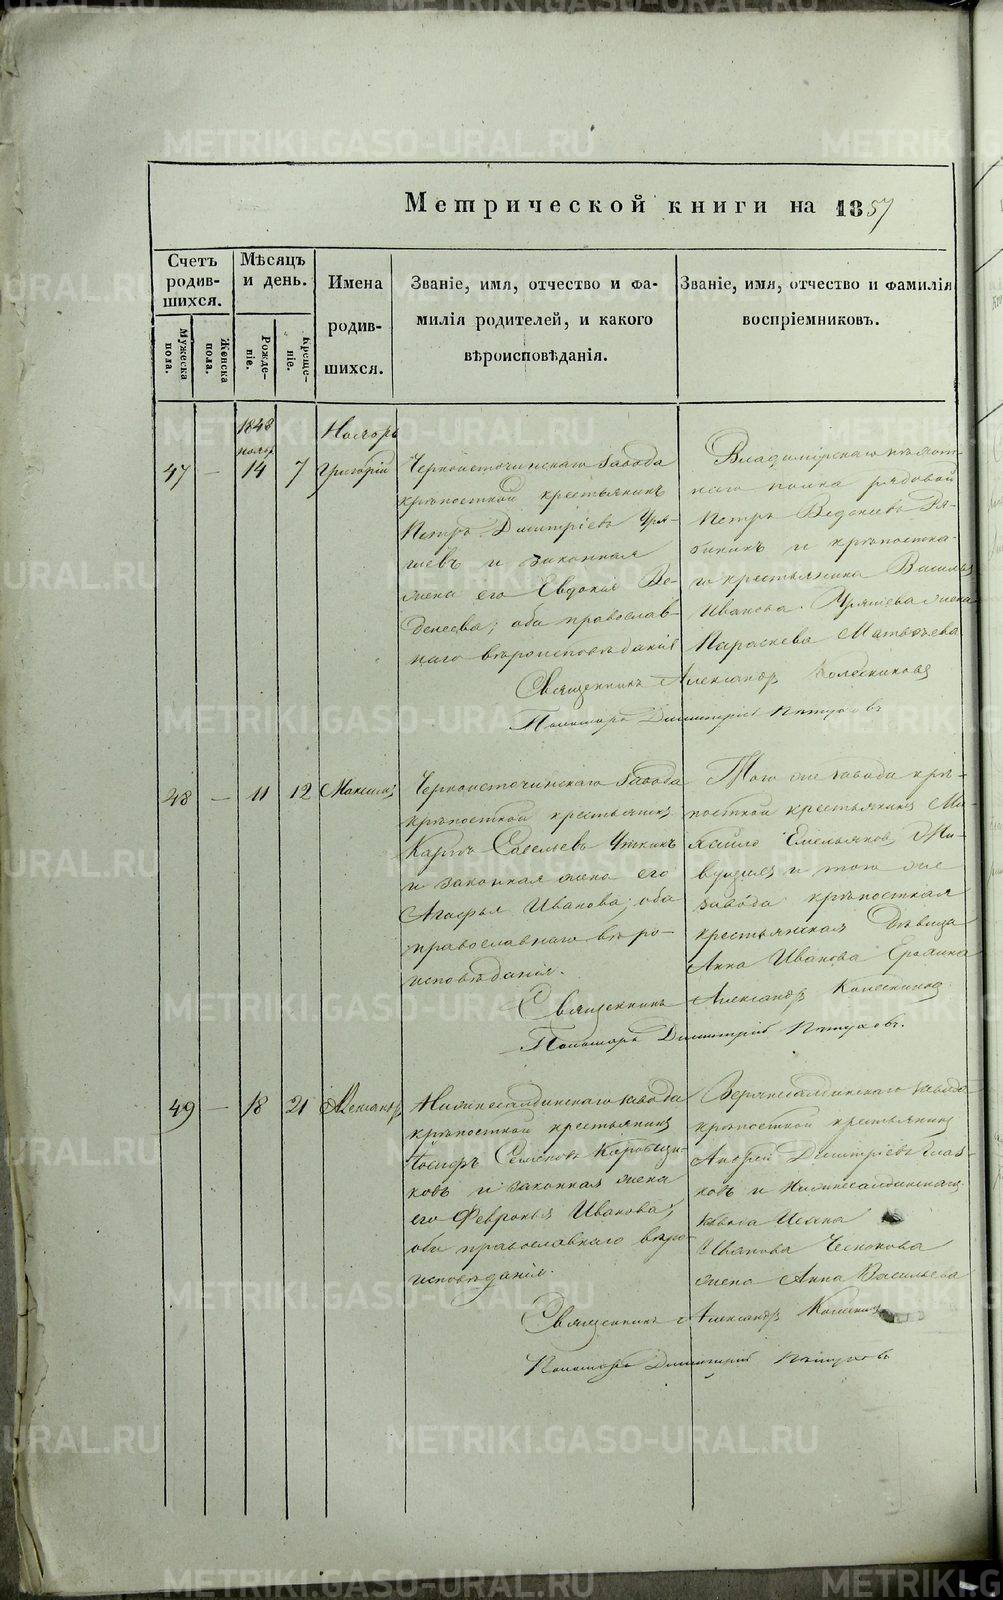 Метрической книги на 1857
Счетъ родив-шихся.
Мѣсяцъ и день.
Имена родив-шихся.
Званіе, имя, отчество и фа-
милія родителей, и какого
вѣроисповѣданія.
Званіе, имя, отчество и фамилія
воспріемниковъ.
Мужеска пола.
Женска пола.
Рожде-ніе.
Креще-ніе.
Ноябрь
47 — 14 7 Григорій
Черноисточинскаго завода
крѣпостной крестьянинъ
Петръ Димитріевъ
и законная
жена его Евдокія Ве-
денеева; оба православ-
наго вѣроисповѣданія
Владимірскаго пѣхот-
наго полка рядовой
Петръ Веденеевъ Ря-
бининъ и крѣпостна-
го крестьянина Василья
Иванова жена
Параскева Матвѣева
Священникъ Александръ Колесниковъ
Пономарь Димитрій Пѣтуховъ
48 — 11 12 Максимъ
Черноисточинскаго завода
крѣпостной крестьянинъ
Карпъ Савельевъ Уткинъ
и законная жена его
Агафья Иванова; оба
православнаго вѣро-
исповѣданія.
Того же завода крѣ-
постной крестьянинъ Ми-
хайло Емельяновъ
и того же
завода крѣпостная
крестьянская дѣвица
Анна Иванова
Священникъ Александръ Колесниковъ
Пономарь Димитрій Пѣтуховъ.
49 — 18 21 Александръ
Нижнесалдинскаго завода
крѣпостной крестьянинъ
Іосифъ Семеновъ Коробщи-
ковъ и законная жена
его Февронья Иванова;
оба православнаго вѣро
исповѣданія.
Верхнесалдинскаго завода
крѣпостной крестьянинъ
Андрей Димитріевъ
и Нижнесалдинскаго
завода Исака
Иванова Чеснокова
жена Анна Васильева
Священникъ Александръ
Пономарь Димитрій Пѣтуховъ
METRIKI.GASO-URAL.RU